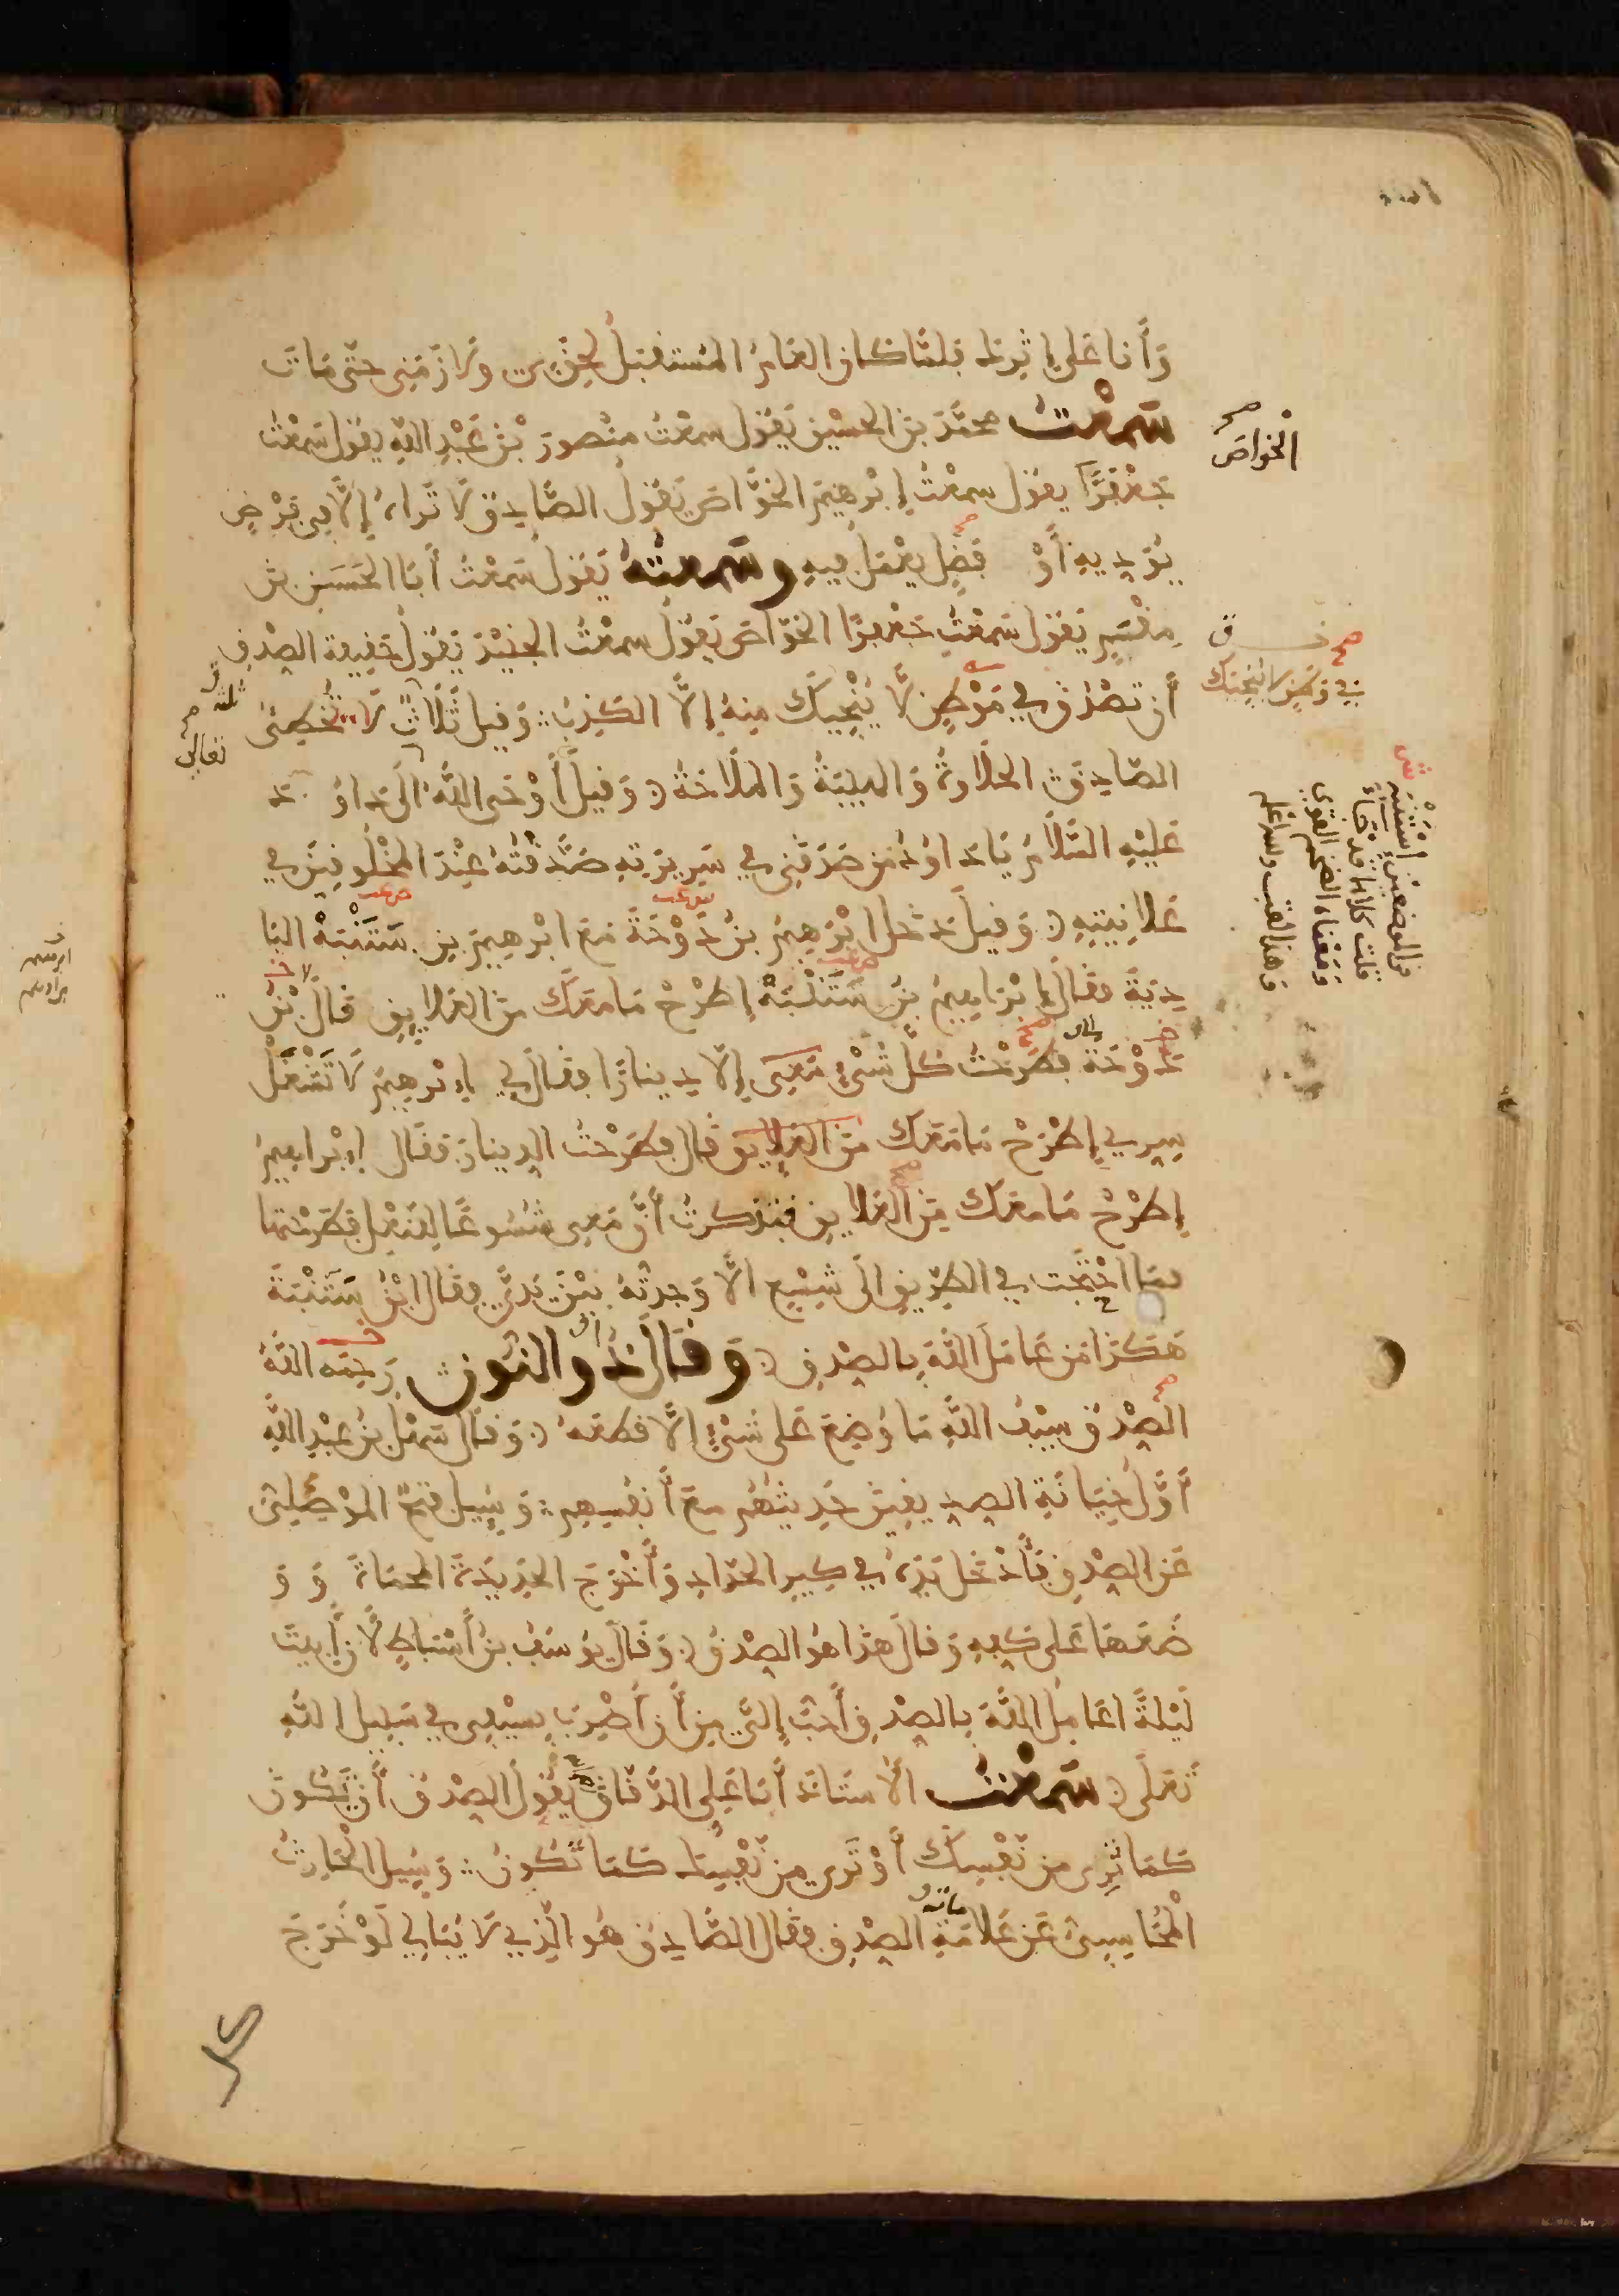 وَأَنَا عَلَى إِثْرِكَ فَلَمَّا كَانَ العَامُ المُسْتَقْبَلُ لَحِقَنِي وَلَازَمَنِي حَتَّى مَاتَ
سَمِعْتُ محمَّدَ بْنَ الحسَيْنِ يَقُولُ سمِعْتُ منْصورَ بْنَ عَبْدِ اللهِ يَقُولُ سَمِعْتُ
جَعْفَرًا يقُولُ سمِعْتُ إِبْرٰهِيمَ الخَوَّاصَ يَقُولُ الصَّادِقُ لَا تَرَاهُ إِلَّا فِي فَرْضٍ
يُؤَدِّيهِ أَوْ فَضْلٍ يعْمَلُ فِيهِ وسَمِعْتُهُ يَقُولُ سَمِعْتُ أَبَا الحَسَنِ بْنَ
مِقْسَمٍ يَقُولُ سَمِعْتُ جَعْفَرًا الخَوَّاصَ يَقُولُ سمِعْتُ الجُنَيْدَ يَقُولُ حَقِيقَةُ الصِّدْقِ
أَنْ تَصْدُقَ فِي مَوْطِنٍ لَّا يُنْجِيكَ مِنْهُ إِلَّا الكَذِبُ وَقِيلَ ثَلَاثٌ لَا تُخْطِئُ
الصَّادِقَ الحَلَاوَةُ وَالهَيْبَةُ وَالمَلَاحَةُ وَقِيلَ أَوْحَى اللَّهُ إِلَى دَاوُدَ
عَلَيْهِ السَّلَامُ يَا دَاوُدُ مَنْ صَدَقَنِي فِي سَرِيرَتِهِ صَدَّقْتُهُ عِنْدَ المَخْلُوقِينَ فِي
عَلَانِيَتِهِ وَقِيلَ دَخَلَ إِبْرٰهِيمُ بْنُ دَوْحَةَ مَعَ إِبْرٰهِيمَ بْنِ سَتَنْبَهْ البَا
دِيَةَ فقَالَ إِبْرَاهِيمُ بْنُ سَتَنْبَهْ إِطْرَحْ مَا مَعَكَ مِنَ العَلَايِقِ قَالَ ابْنُ
دَوْحَةَ فَطَرَحْتُ كُلَّ شَيْءٍ مَعِي إِلَّا دِينَارًا فقَالَ لِي يا إِبْرٰهِيمُ لَا تَشْغَلْ
سِرِّي إِطْرَحْ مَا مَعَكَ مِنَ العَلَايِقِ قَالَ فطَرَحْتُ الدِّينَارَ فَقَالَ يا إِبْرَاهِيمُ
إِطْرَحْ مَا مَعَكَ مِنَ العَلَايِقِ فَتَذَكَّرْتُ أَنَّ مَعِي شُسُوعًا لِلنَّعْلِ فَطَرَحْتُهَا
فمَا احْتَجْتُ فِي الطَّرِيقِ إِلَى شِسْعٍ إِلَّا وَجَدْتُهُ بَيْنَ يَدَيَّ فقَالَ ابْنُ سَتَنْبَةَ
هَكَذَا مَنْ عَامَلَ اللَّهَ بِالصِّدْقِ وَقَالَ ذُو النُّونِ رَحِمَهُ اللَّهُ
الصِّدْقُ سَيْفُ اللَّهِ مَا وُضِعَ عَلَى شَيْءٍ إِلَّا قَطَعَهُ وَقَالَ سَهْلُ بْنُ عَبْدِ اللَّهِ
أَوَّلُ خِيَانَةِ الصِّدِّيقِينَ حَدِيثُهُمْ مَعَ أَنْفُسِهِمْ وَسُئِلَ فَتْحٌ المَوْصِلِيُّ
عَنِ الصِّدْقِ فَأَدْخَلَ يَدَهُ فِي كِيرِ الحَدَّادِ وَأَخْرَجَ الحَدِيدَةَ المُحْمَاةَ وَ وَ
ضَعَهَا عَلَى كَفِّهِ وَقَالَ هَذَا هُوَ الصِّدْقُ وَقَالَ يُوسُفُ بْنُ أَسْبَاطٍ لَأَنْ أَبِيتَ
لَيْلَةً أُعَامِلُ اللَّهَ بِالصِّدْقِ أَحَبُّ إِلَيَّ مِنْ أَنْ أَضْرِبَ بِسَيْفِي فِي سَبِيلِ اللَّهِ
تَعَلَى سَمِعْتُ الأُسْتَاذَ أَبَا عَلِيٍّ الدَّقَّاقَ يَقُولُ الصِّدْقُ أَنْ تَكُونَ
كَمَا تُرِي مِنْ نَفْسِكَ أَوْ تَرَى مِنْ نَفْسِكَ كَمَا تَكُونُ وَسُئِلَ الحَارِثُ
المُحَاسِبِيُّ عَنْ عَلَامَةِ الصِّدْقِ فقَالَ الصَّادِقُ هُوَ الَّذِي لَا يُبَالِي لَوْ خَرَجَ
الخواص
تعالى